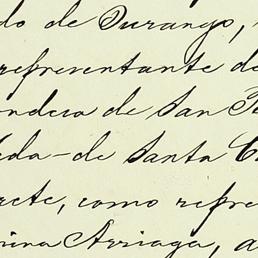 do de Durango,
representante de
ondera de San
da - de Santa
rete, como repre
rina Arriaga, a